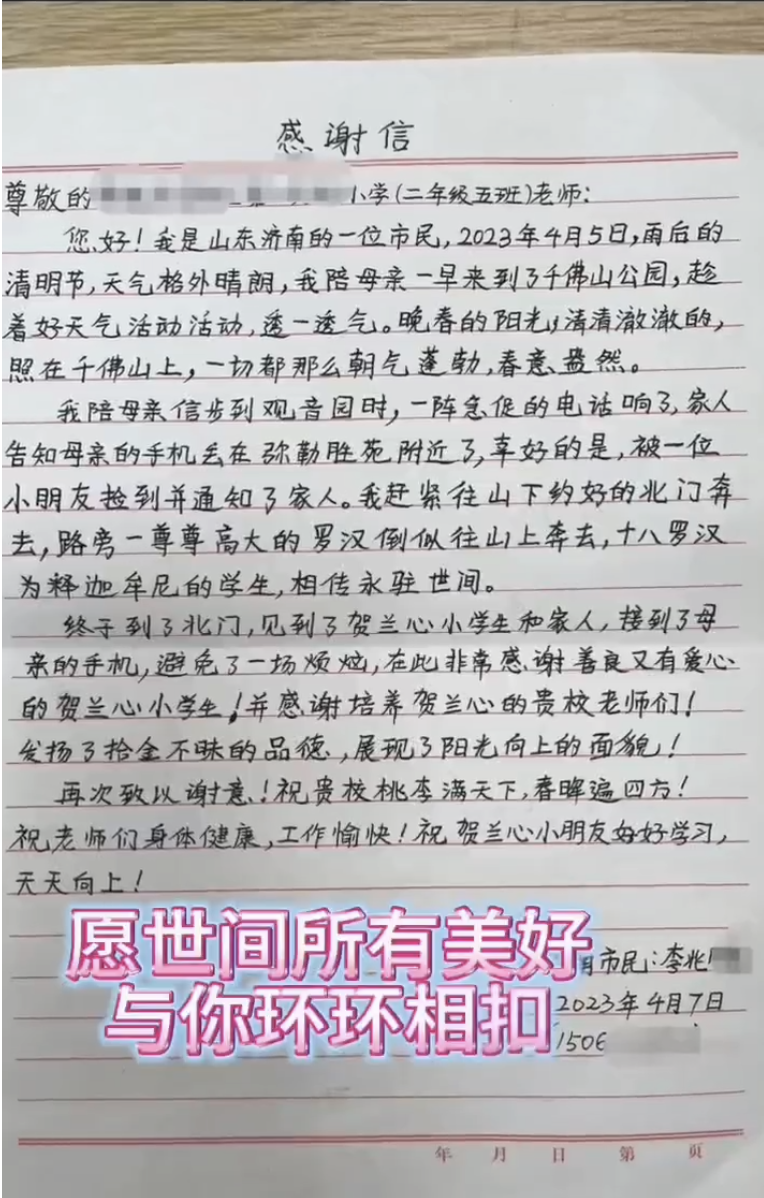 感谢信
尊敬的 小学(二年级五班)老师:
您好!我是山东济南的一位市民,2023年4月5日,雨后的
清明节,天气格外晴朗,我陪母亲一早来到了千佛山公园,趁
着好天气活动活动,透一透气。晚春的阳光,清清澈澈的,
照在千佛山上,一切都那么朝气蓬勃,春意盎然。
我陪母亲信步到观音园时,一阵急促的电话响了,家人
告知母亲的手机丢在弥勒胜苑附近了,幸好的是,被一位
小朋友捡到并通知了家人。我赶紧往山下约好的北门奔
去,路旁一尊尊高大的罗汉倒似往山上奔去,十八罗汉
为释迦牟尼的学生,相传永驻世间。
终于到了北门,见到了贺兰心小学生和家人,接到了母
亲的手机,避免了一场烦恼,在此非常感谢善良又有爱心
的贺兰心小学生!并感谢培养贺兰心的贵校老师们!
发扬了拾金不昧的品德,展现了阳光向上的面貌!
再次致以谢意!祝贵校桃李满天下,春晖遍四方!
祝老师们身体健康,工作愉快!祝贺兰心小朋友好好学习,
天天向上!
愿世间所有美好
市民:李兆
与你环环相扣
2023年4月7日
1506
年 月 日 第 页